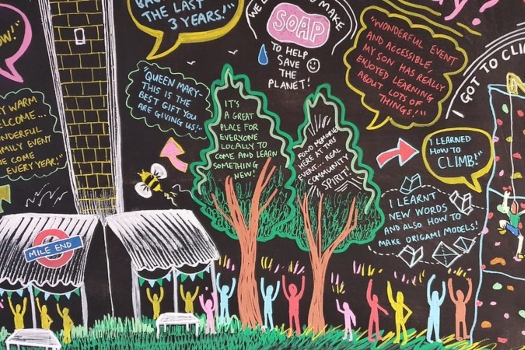 OW!"
BACK
THE LAST
3 YEARS!"
WE
MAKE
SOAP
TO HELP
SAVE
THE
PLANET!
"WONDERFUL EVENT
AND ACCESSIBLE.
MY SON HAS REALLY
ENJOYED LEARNING
ABOUT LOTS OF
THINGS!"
I GOT TO CLI
"QUEEN MARY-
THIS IS THE
BEST GIFT YOU
ARE GIVING US."
Y WARM
WELCOME...
NDERFUL
AMILY EVENT
E COME
EVERY YEAR!"
IT'S
A GREAT
PLACE FOR
EVERYONE
LOCALLY TO
COME AND LEARN
SOMETHING
NEW!
HERE AT THIS
EVENT. REAL
COMMUNITY
SPIRIT!
"I LEARNED
HOW TO
CLIMB!"
I LEARNT
NEW WORDS
AND ALSO HOW TO
MAKE ORIGAMI MODELS!
MILE END